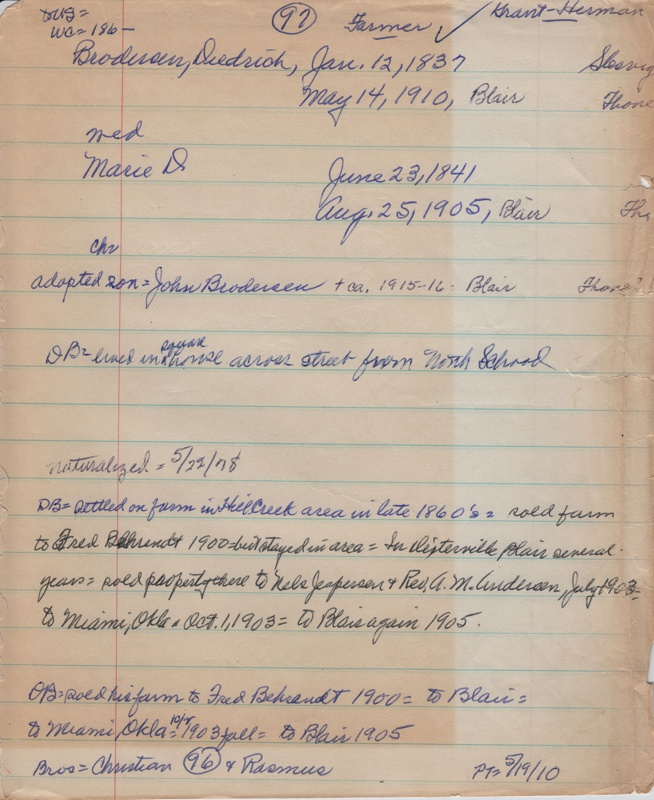 DUS=
WC=186-
97
Farmer ✓
Kravit-Herman
Brodersen, Diedrich, Jan. 12, 1837 Slesvig
May 14, 1910, Blair Thone
wed
Marie D. June 23, 1841
Aug. 25, 1905, Blair Tho
chr
adopted son = John Brodersen + ca. 1915-16 = Blair Thone
DB= lived in square house across street from North School
naturalized = 5/22/78
DB= settled on farm in Hill Creek area in late 1860's = sold farm
to Fred Behrendt 1900 but stayed in area = In Blair several
years = sold property there to Nels Jeppersen & Rev. A. M. Andersen, July 1903=
to Miami, Okla. Oct. 1, 1903 = to Blair again 1905.
DB= sold his farm to Fred Behrandt 1900 = to Blair =
to Miami, Okla = 1903 fall = to Blair 1905
Bros = Christian 96 & Rasmus PT= 5/19/10